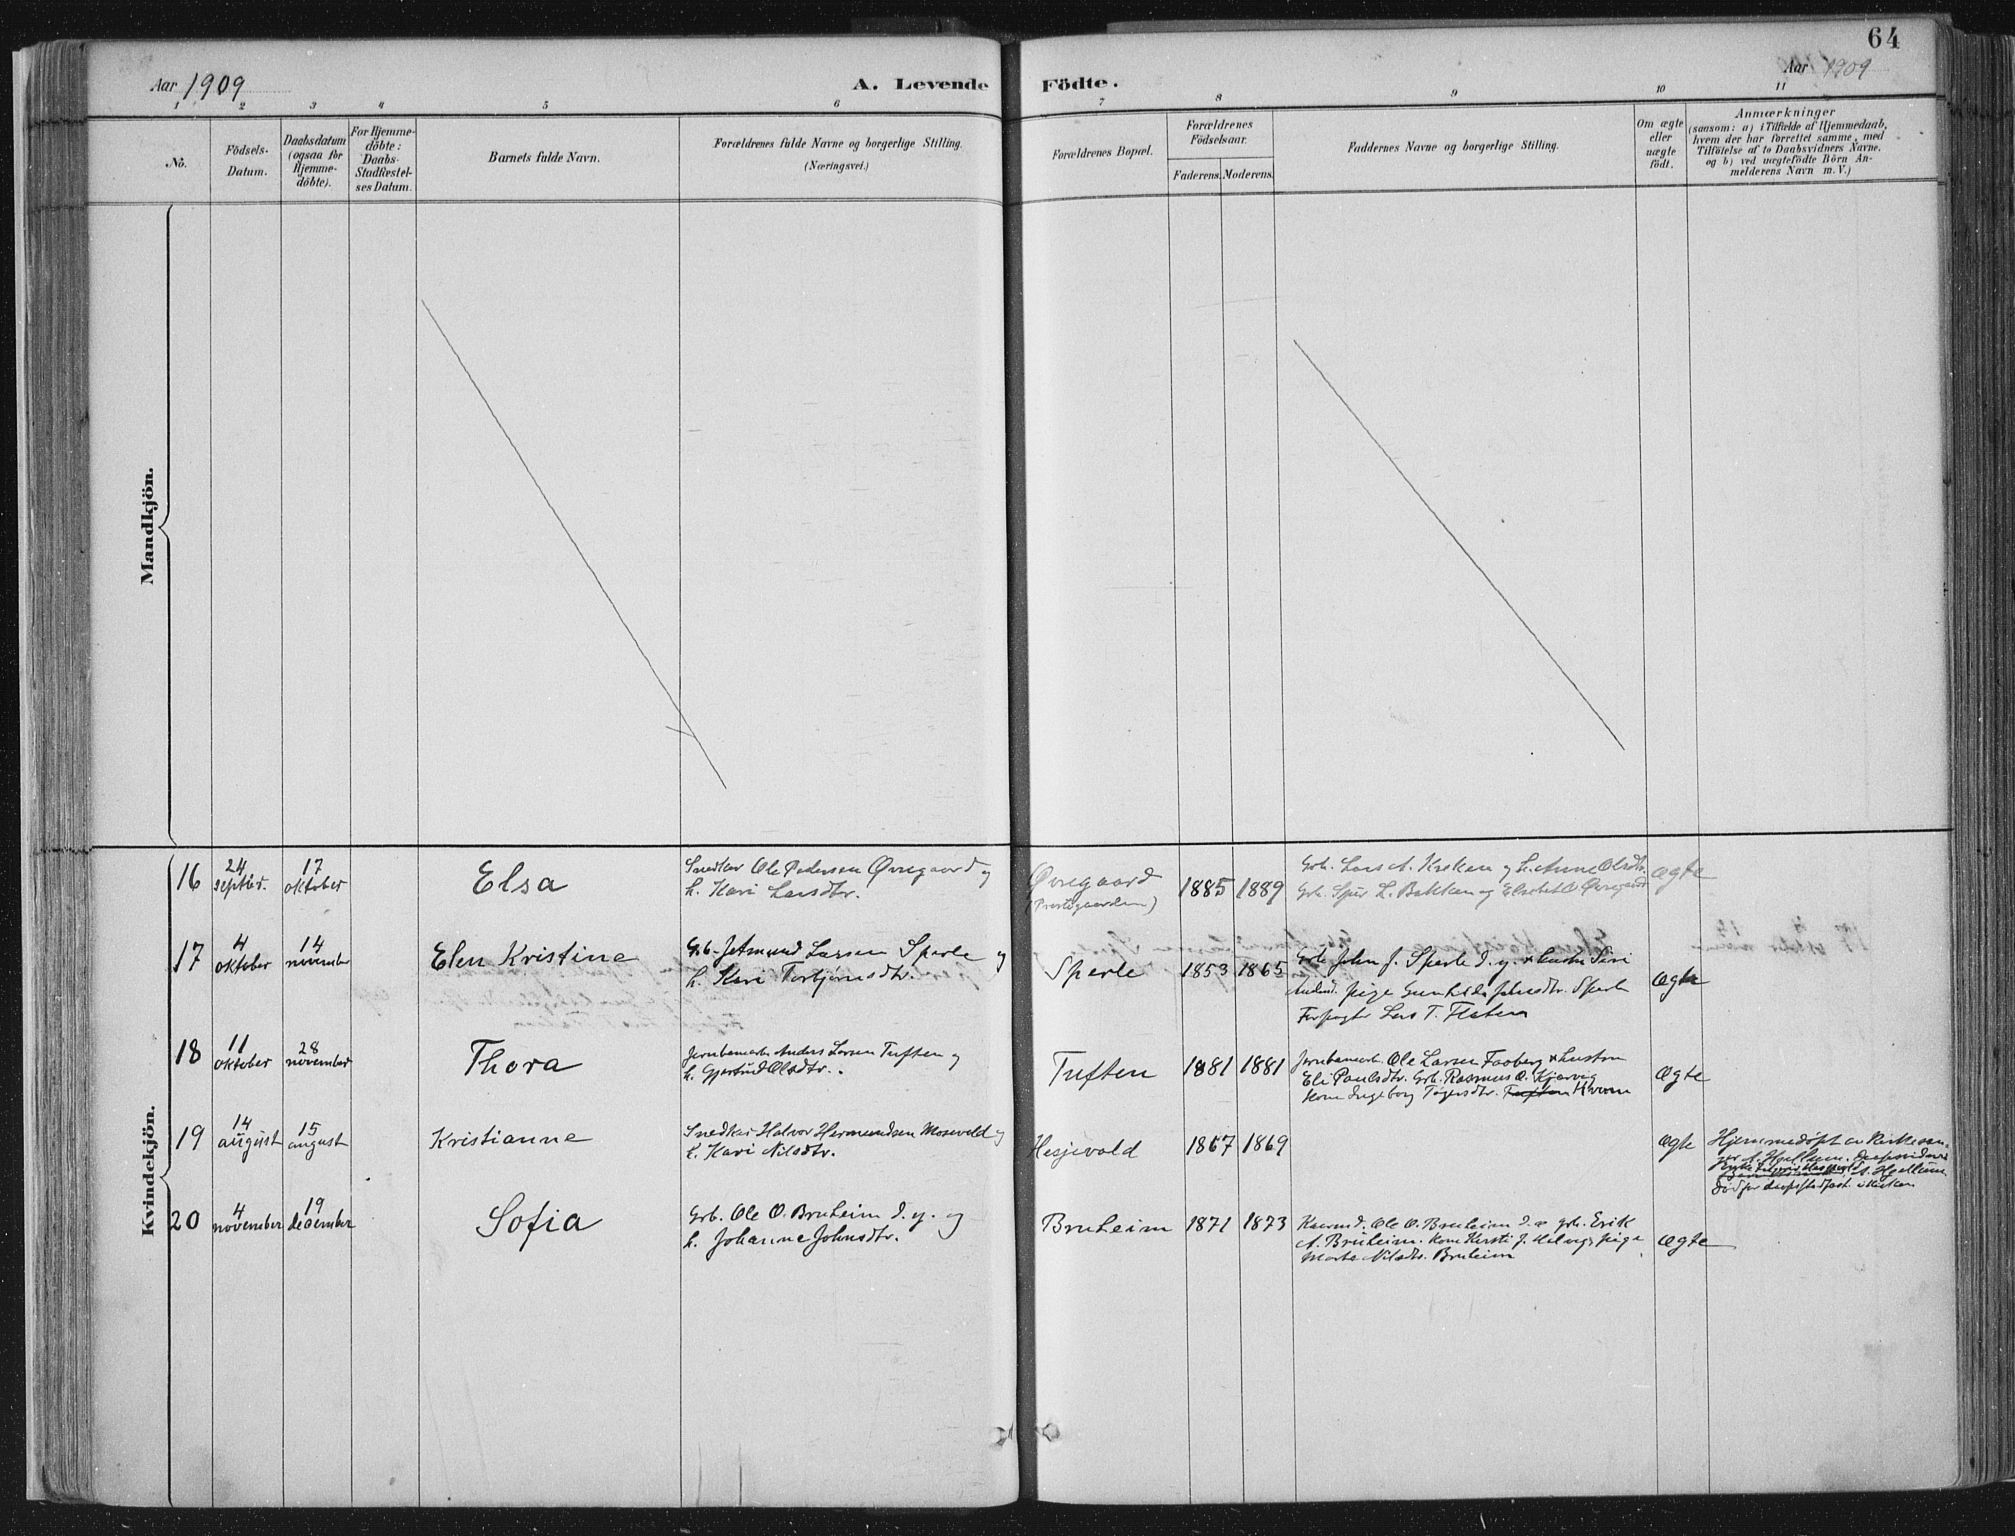 64
Aar 1909
A. Levende Födte.
Aar 1909
1 2 3 4 5 6 7 8 9 10 11
No.
Födsels-
Datum.
Daabsdatum
(ogsaa for
Hjemme-
döbte).
For Hjemme-
döbte:
Daabs-
Stadfæstel-
ses Datum.
Barnets fulde Navn.
Forældrenes fulde Navne og borgerlige Stilling.
(Næringsvei.)
Forældrenes Bopæl.
Forældrenes
Födselsaar.
Faderens. Moderens.
Faddernes Navne og borgerlige Stilling.
Om ægte
eller
uægte
født.
Anmærkninger
(saasom: a) i Tilfælde af Hjemmedaab,
hvem der har forrettet samme, med
Tilföielse af to Daabsvidners Navne,
og b) ved uægtefödte Börn An-
melderens Navn m. V.)
Mandkjön.
Kvindekjön.
16
24
septbr.
17
oktober
Elsa
Snedker Ole Pedersen Øvregaard og
h. Kari Larsdtr.
Øvregaard
(Prestegaarden)
1885 1889
Grb. Lars A. Kroken og h. Anne Olsdtr.
Grb. L. Bakken og Elsebet O Øvregaard
ægte
17
4
oktober
14
november
Elen Kristine
Grb. Larsen Sperle og
h. Kari Torbjørnsdtr.
Sperle
1853 1865
Grb. John J. Sperle d. y. Siri
pige Gunhilda Sperle
Forpagter Lars T. Flaten
ægte
18
11
oktober
28
november
Thora
Jernbanearb. Anders Larsen Tuften og
h. Gjertrud Olsdtr.
Tuften
1881 1881
Jernbanearb. Ole Larsen Faaberg
Eli Paulsdtr. Grb. Rasmus O. Kjærvig
Kone Ingeborg Tøgersdtr. Tuften Kvam
ægte
19
14
august
15
august
Kristianne
Snedker Halvor Hermundsen Mosevold og
h. Kari Nilsdtr.
Hesjevold
1867 1869
ægte
Hjemmedøpt av Kirkesan-
ger A. Hjellum.
A. Hjellum
20
4
november
19
december
Sofia
Grb. Ole O. Bruheim d. y. og
h. Johanne Johnsdtr.
Bruheim
1871 1873
Ole O. Bruheim grb. Erik
A. Bruheim. Kone Kersti J. pige
Marta Nilsdtr. Bruheim
ægte